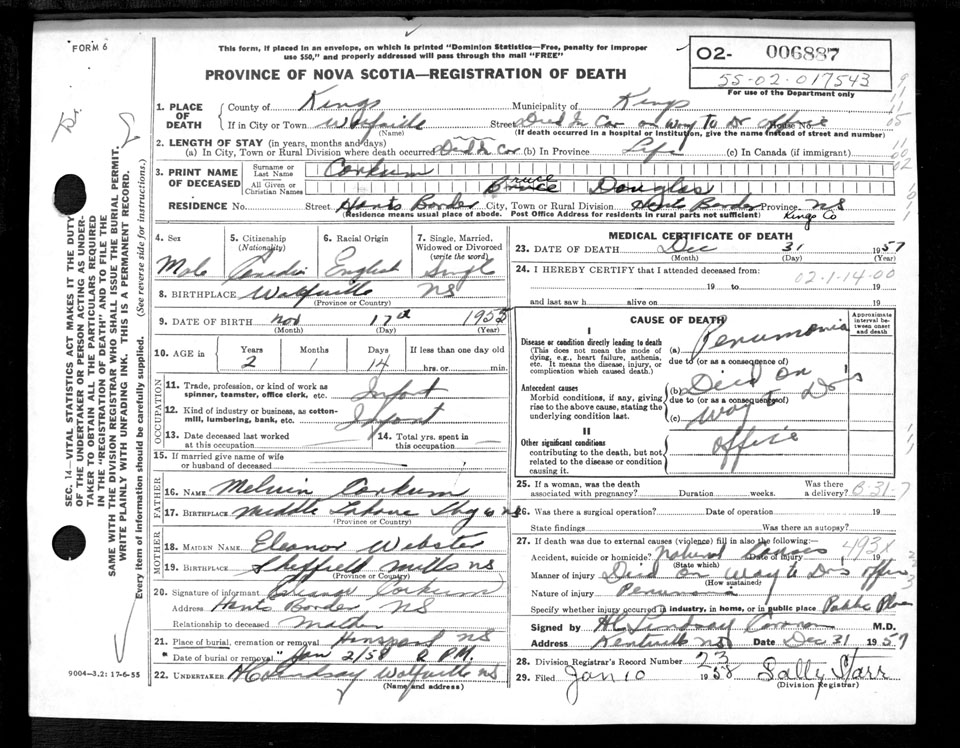 FORM 6
This form, if placed in an envelope, on which is printed "Dominion Statistics—Free, penalty for improper
use $50," and properly addressed will pass through the mail "FREE"
PROVINCE OF NOVA SCOTIA—REGISTRATION OF DEATH
O2- 006887
55-02-017543
For use of the Department only
1. PLACE OF DEATH
County of Kings Municipality of Kings
If in City or Town Wolfville Street Died In Car on Way To Dr office House No.
(Name) (If death occurred in a hospital or institution, give the name instead of street and number)
2. LENGTH OF STAY (in years, months and days)
(a) In City, Town or Rural Division where death occurred Died In Car (b) In Province Life (c) In Canada (if immigrant)
3. PRINT NAME OF DECEASED
Surname or Last Name Corkum
All Given or Christian Names Bruce Douglas
RESIDENCE No. Street Hants Border City, Town or Rural Division Hants Border Province NS
(Residence means usual place of abode. Post Office Address for residents in rural parts not sufficient) Kings Co
4. Sex Male
5. Citizenship (Nationality) Canadin
6. Racial Origin English
7. Single, Married, Widowed or Divorced (write the word) Single
8. BIRTHPLACE Wolfville NS
(Province or Country)
9. DATE OF BIRTH Nov 17th 1955
(Month) (Day) (Year)
10. AGE in Years 2 Months 1 Days 14 If less than one day old hrs. or min.
OCCUPATION
11. Trade, profession, or kind of work as spinner, teamster, office clerk, etc. Infant
12. Kind of industry or business, as cotton-mill, lumbering, bank, etc. Infant
13. Date deceased last worked at this occupation
14. Total yrs. spent in this occupation
15. If married give name of wife or husband of deceased
FATHER
16. NAME Melvin Corkum
17. BIRTHPLACE Middle Lahave NS
(Province or Country)
MOTHER
18. MAIDEN NAME Eleanor Webster
19. BIRTHPLACE Sheffield Mills NS
(Province or Country)
20. Signature of informant Eleanor Corkum
Address Hants Border NS
Relationship to deceased Mother
21. Place of burial, cremation or removal NS
Date of burial or removal Jan 2/58 2 P.M.
22. UNDERTAKER H C Lindsay Wolfville NS
(Name and address)
9004-3.2: 17-6-55
SEC. 14—VITAL STATISTICS ACT MAKES IT THE DUTY
OF THE UNDERTAKER OR PERSON ACTING AS UNDER-
TAKER TO OBTAIN ALL THE PARTICULARS REQUIRED
IN THE "REGISTRATION OF DEATH" AND TO FILE THE
SAME WITH THE DIVISION REGISTRAR WHO SHALL ISSUE THE BURIAL PERMIT.
WRITE PLAINLY WITH UNFADING INK. THIS IS A PERMANENT RECORD.
Every item of information should be carefully supplied. (See reverse side for instructions.)
MEDICAL CERTIFICATE OF DEATH
23. DATE OF DEATH Dec 31 1957
(Month) (Day) (Year)
24. I HEREBY CERTIFY that I attended deceased from:
02-1-14-00
19 to 19
and last saw h alive on 19
CAUSE OF DEATH
Approximate interval between onset and death
I
Disease or condition directly leading to death
(This does not mean the mode of dying, e.g., heart failure, asthenia, etc. It means the disease, injury, or complication which caused death.)
(a) Penumonia
due to (or as a consequence of)
Antecedent causes
Morbid conditions, if any, giving rise to the above cause, stating the underlying condition last.
(b) Died on
due to (or as a consequence of)
(c) Way to Drs
II
Other significant conditions
contributing to the death, but not related to the disease or condition causing it.
office
25. If a woman, was the death associated with pregnancy? Duration weeks. Was there a delivery? B-31-7
26. Was there a surgical operation? Date of operation 19
State findings Was there an autopsy?
27. If death was due to external causes (violence) fill in also the following: 493X
Accident, suicide or homicide? Natural Causes Date of injury 19
(State which)
Manner of injury Died on way to Drs office
(How sustained)
Nature of injury Penumonia
Specify whether injury occurred in industry, in home, or in public place Public Place
Signed by M.D.
Address Kentville NS Date Dec 31 1957
28. Division Registrar's Record Number 23
29. Filed Jan 10 1958 Sally Starr
(Division Registrar)